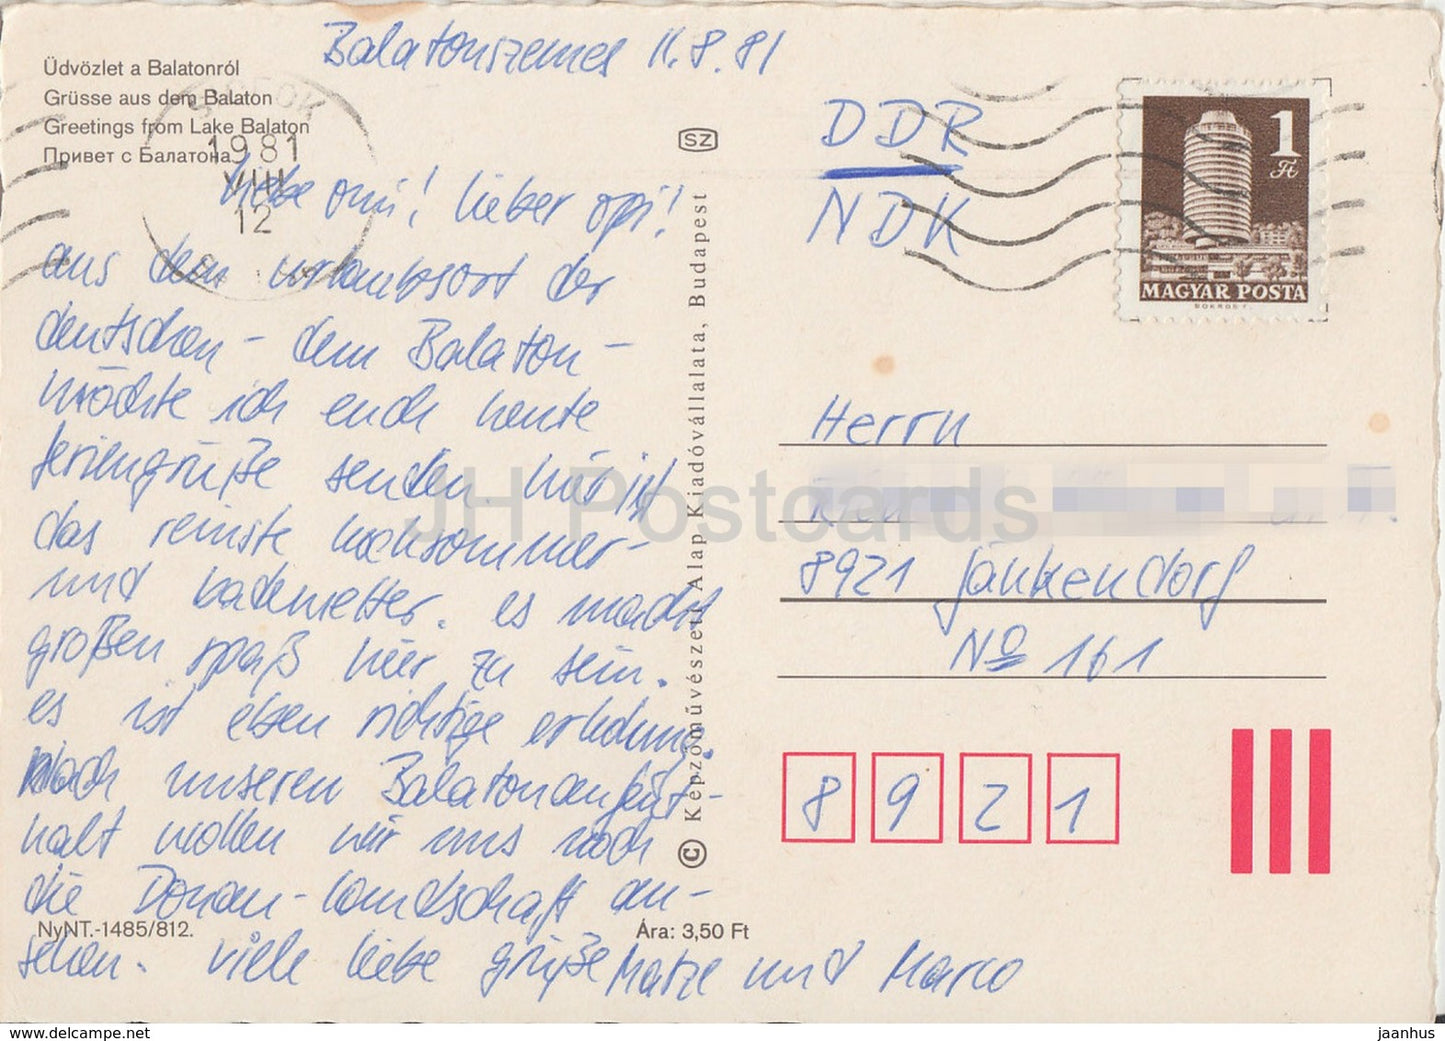 Balatonszemes 11.8.81
Üdvözlet a Balatonról
Grüsse aus dem Balaton
Greetings from Lake Balaton
Привет с Балатона
SIÓFOK
1981
VIII
12
SZ
DDR
NDK
1
Ft
MAGYAR POSTA
liebe omi! lieber opi!
aus dem urlaubsort der
deutschen - dem Balaton -
möchte ich euch heute
feriengrüße senden. hier ist
das reinste hochsommer-
und badewetter. es macht
großen spaß hier zu sein.
es ist eben richtige erholung.
Nach unseren Balatonaufent-
halt wollen wir uns noch
die Donau-landschaft an-
sehen. viele liebe grüße Matze und Marco
© Képzőművészeti Alap Kiadóvállalata, Budapest
Herrn
8921 Jänkendorf
No 161
8 9 2 1
NyNT.-1485/812.
Ára: 3,50 Ft
JH Postcards
www.delcampe.net
jaanhus